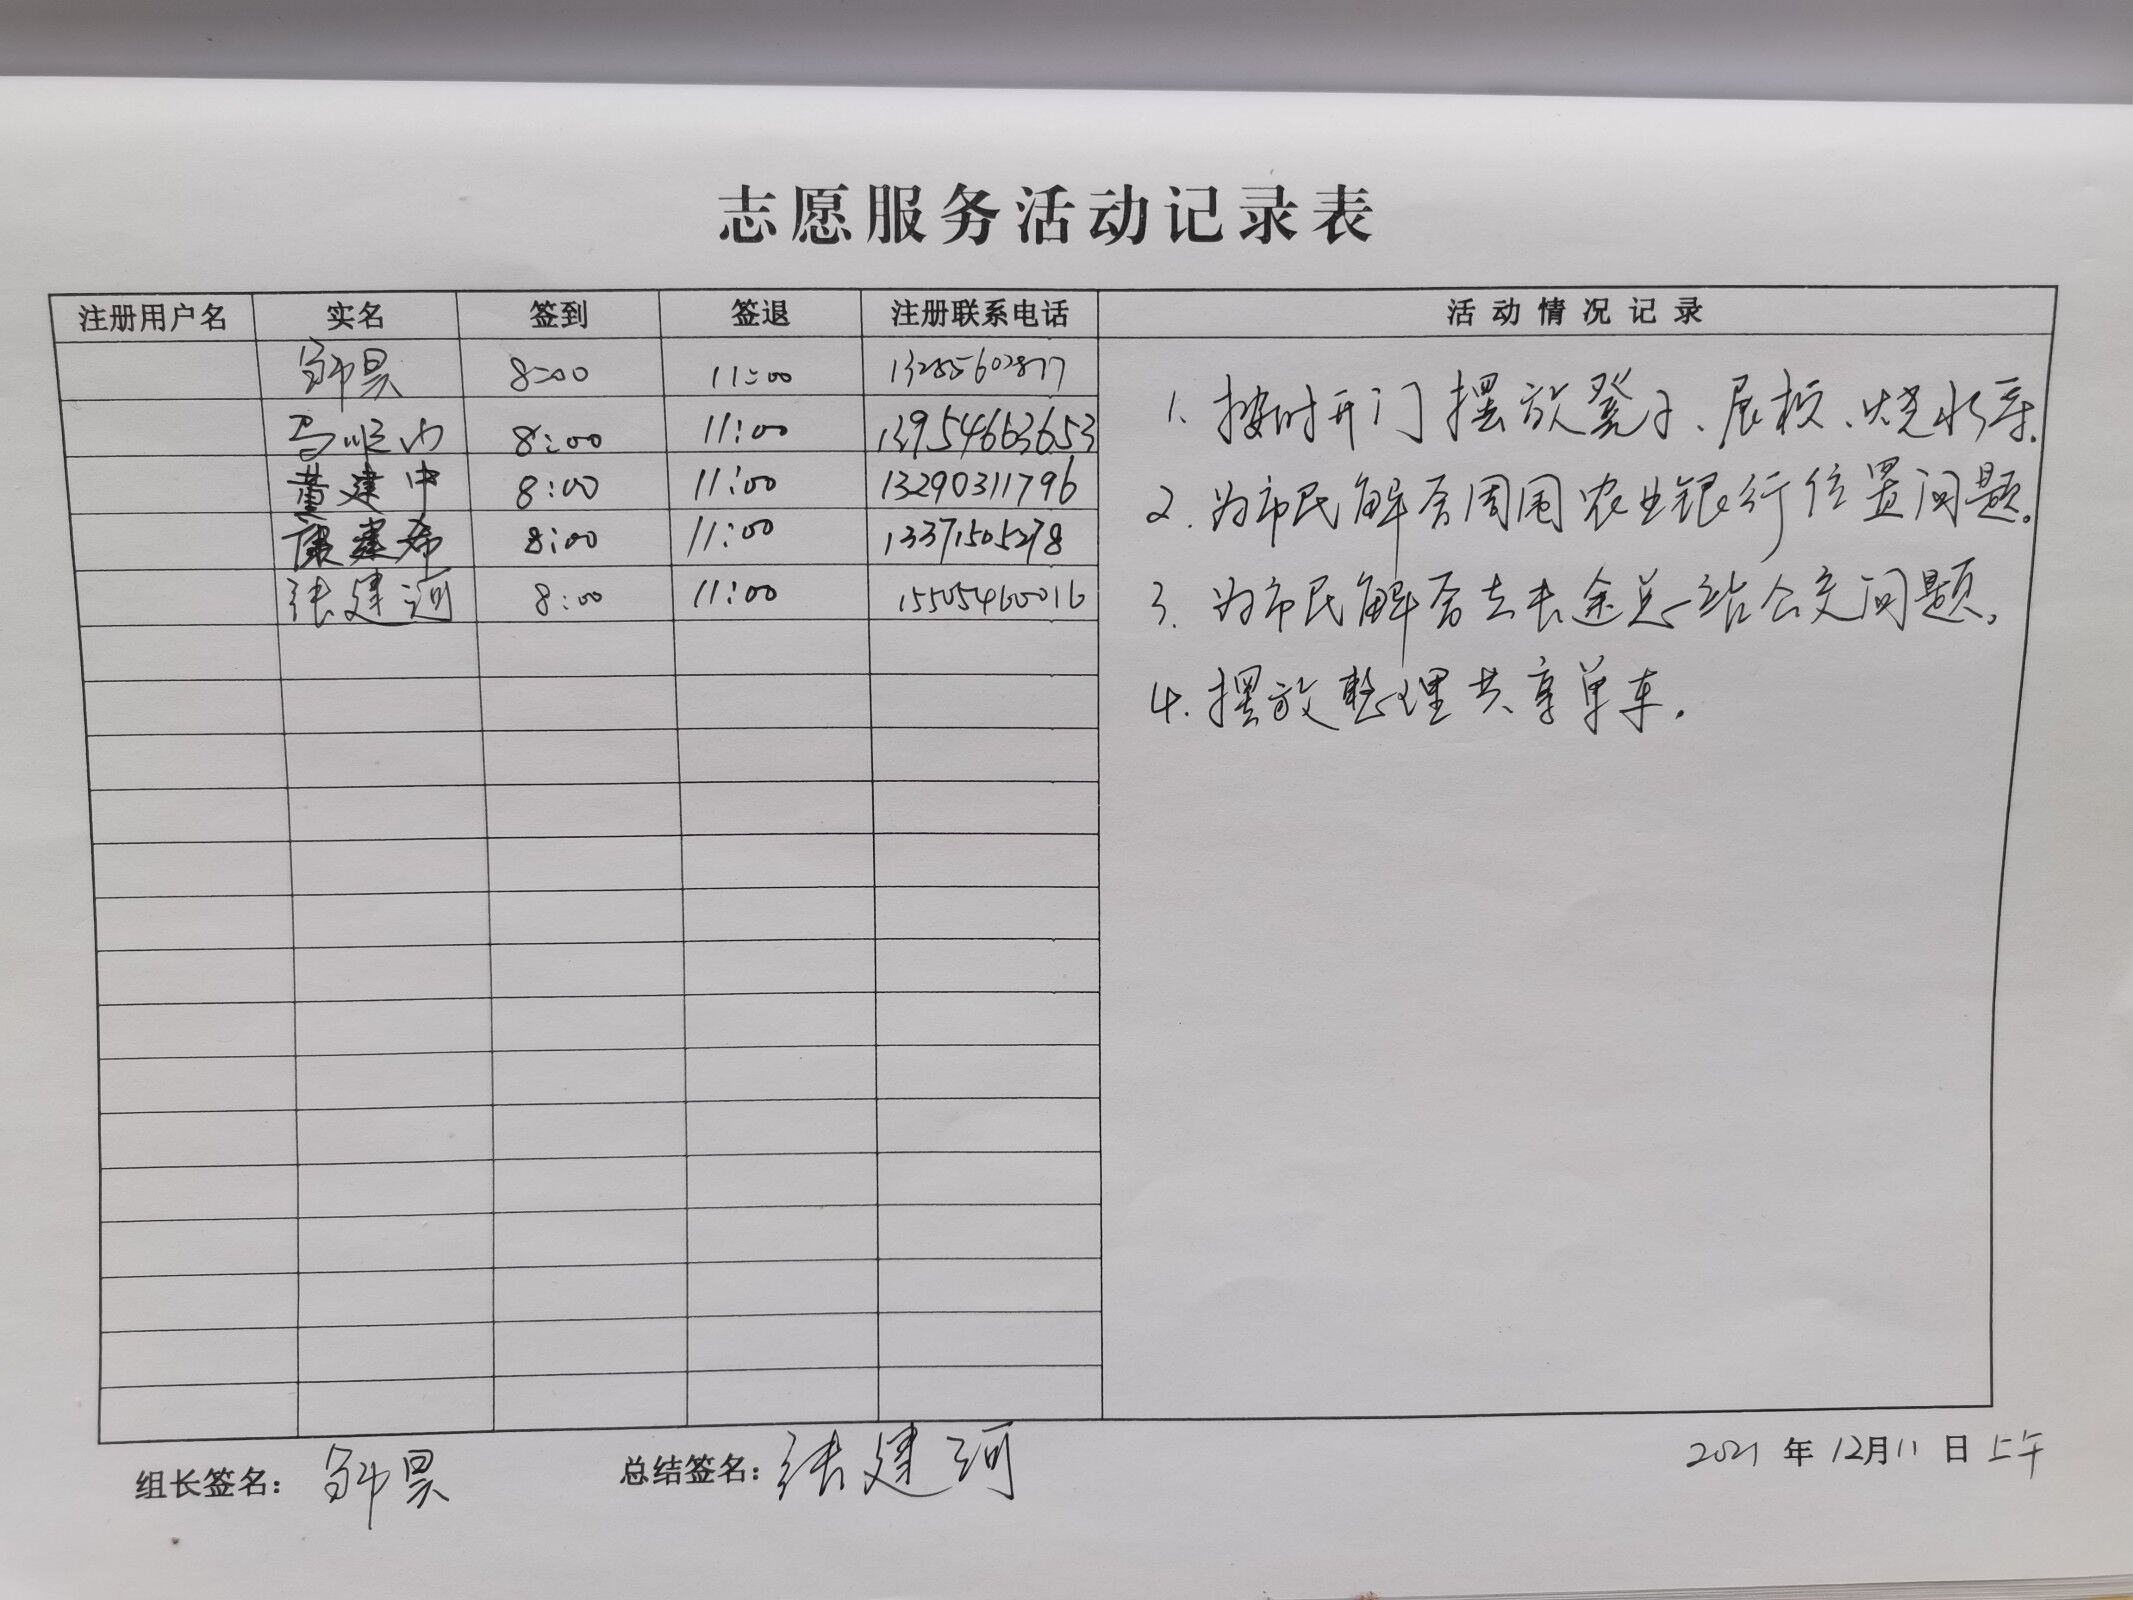 志愿服务活动记录表
注册用户名 实名 签到 签退 注册联系电话 活动情况记录
8:00 11:00 13285602877
马顺山 8:00 11:00 13954663653
董建中 8:00 11:00 13290311796
康建希 8:00 11:00 13371505278
张建河 8:00 11:00 15505460016
1. 按时开门摆放凳子、展板、烧水等.
2. 为市民解答周围农业银行位置问题.
3. 为市民解答去长途总站公交问题.
4. 摆放整理共享单车.
组长签名: 总结签名: 张建河 2021年12月11日上午